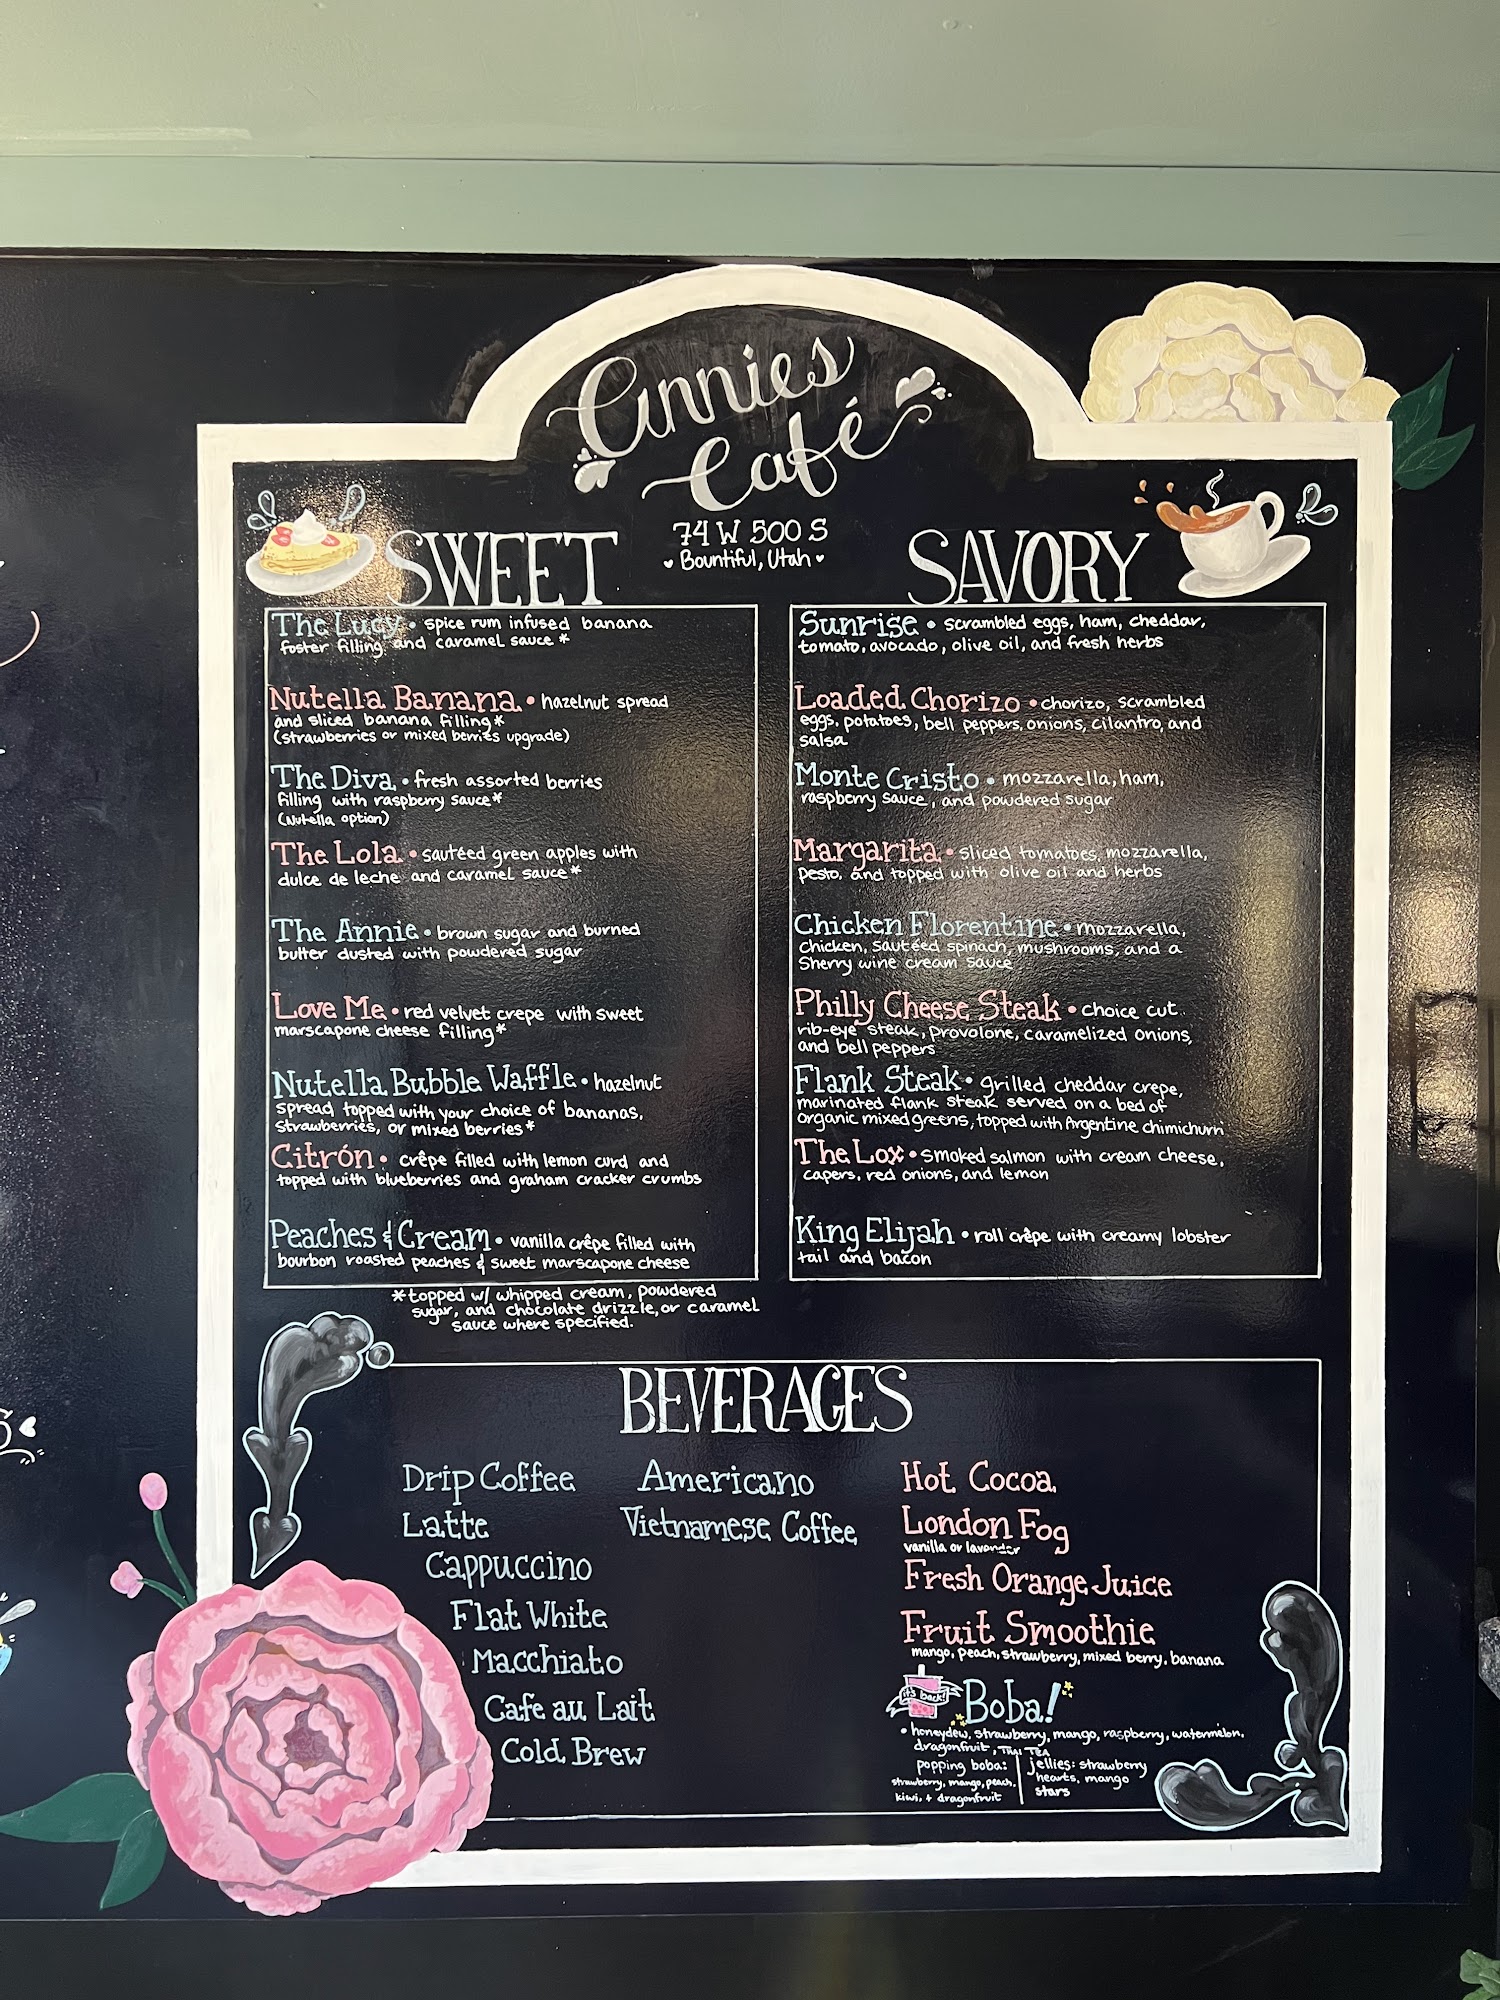 Annies
Café
74 W 500 S
Bountiful, Utah
SWEET
The Lucy • spice rum infused banana
foster filling and caramel sauce *
Nutella Banana • hazelnut spread
and sliced banana filling*
(strawberries or mixed berries upgrade)
The Diva • fresh assorted berries
filling with raspberry sauce*
(Nutella option)
The Lola • sautéed green apples with
dulce de leche and caramel sauce*
The Annie • brown sugar and burned
butter dusted with powdered sugar
Love Me • red velvet crepe with sweet
marscapone cheese filling*
Nutella Bubble Waffle • hazelnut
spread topped with your choice of bananas,
strawberries, or mixed berries*
Citrón • crêpe filled with lemon curd and
topped with blueberries and graham cracker crumbs
Peaches & Cream • vanilla crêpe filled with
bourbon roasted peaches & sweet marscapone cheese
*topped w/ whipped cream, powdered
sugar, and chocolate drizzle, or caramel
sauce where specified.
SAVORY
Sunrise • scrambled eggs, ham, cheddar,
tomato, avocado, olive oil, and fresh herbs
Loaded Chorizo • chorizo, scrambled
eggs, potatoes, bell peppers, onions, cilantro, and
salsa
Monte Cristo • mozzarella, ham,
raspberry sauce, and powdered sugar
Margarita • sliced tomatoes, mozzarella,
pesto, and topped with olive oil and herbs
Chicken Florentine • mozzarella,
chicken, sautéed spinach, mushrooms, and a
Sherry wine cream sauce
Philly Cheese Steak • choice cut
rib-eye steak, provolone, caramelized onions,
and bell peppers
Flank Steak • grilled cheddar crepe,
marinated flank steak served on a bed of
organic mixed greens, topped with Argentine chimichurri
The Lox • smoked salmon with cream cheese,
capers, red onions, and lemon
King Elijah • roll crêpe with creamy lobster
tail and bacon
BEVERAGES
Drip Coffee
Latte
Cappuccino
Flat White
Macchiato
Cafe au Lait
Cold Brew
Americano
Vietnamese Coffee
Hot Cocoa
London Fog
vanilla or lavender
Fresh Orange Juice
Fruit Smoothie
mango, peach, strawberry, mixed berry, banana
it's back!
Boba!
• honeydew, strawberry, mango, raspberry, watermelon,
dragonfruit, THAI TEA
popping boba:
strawberry, mango, peach,
kiwi, + dragonfruit
jellies: strawberry
hearts, mango
stars